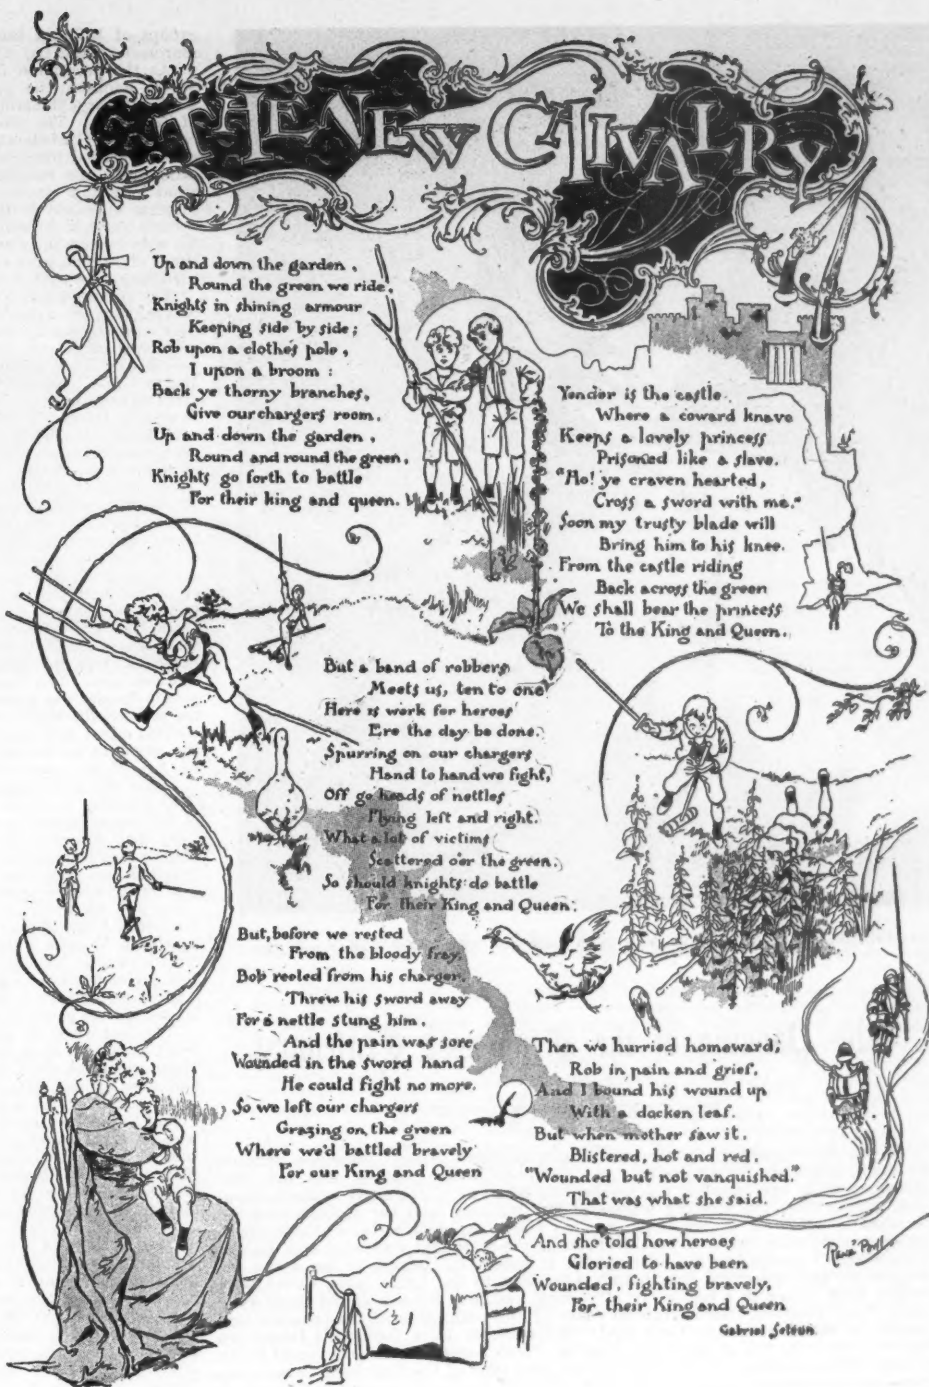 THE NEW CHIVALRY
Up and down the garden,
Round the green we ride.
Knights in shining armour
Keeping side by side;
Rob upon a clothes pole,
I upon a broom:
Back ye thorny branches,
Give our chargers room.
Up and down the garden,
Round and round the green,
Knights go forth to battle
For their king and queen.
Yonder is the castle
Where a coward knave
Keeps a lovely princess
Prisoned like a slave.
"Ho! ye craven hearted,
Cross a sword with me."
Soon my trusty blade will
Bring him to his knee.
From the castle riding
Back across the green
We shall bear the princess
To the King and Queen.
But a band of robbers
Meets us, ten to one
Here is work for heroes
Ere the day be done.
Spurring on our chargers
Hand to hand we fight,
Off go heads of nettles
Flying left and right.
What a lot of victims
Scattered o'er the green.
So should knights do battle
For their King and Queen.
But, before we rested
From the bloody fray,
Bob reeled from his charger,
Threw his sword away
For a nettle stung him,
And the pain was sore,
Wounded in the sword hand
He could fight no more.
So we left our chargers
Grazing on the green
Where we'd battled bravely
For our King and Queen
Then we hurried homeward,
Rob in pain and grief,
And I bound his wound up
With a docken leaf.
But when mother saw it,
Blistered, hot and red,
"Wounded but not vanquished."
That was what she said.
And she told how heroes
Gloried to have been
Wounded, fighting bravely,
For their King and Queen
Gabriel Setoun
René Bull